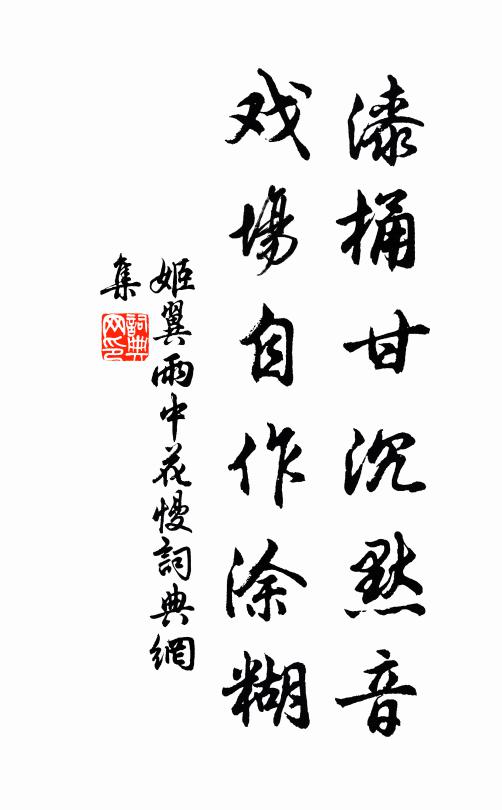 漆桶甘沉默音
戏場自作涂糊
姬翼雨中花慢詞典網
集
詞典网印